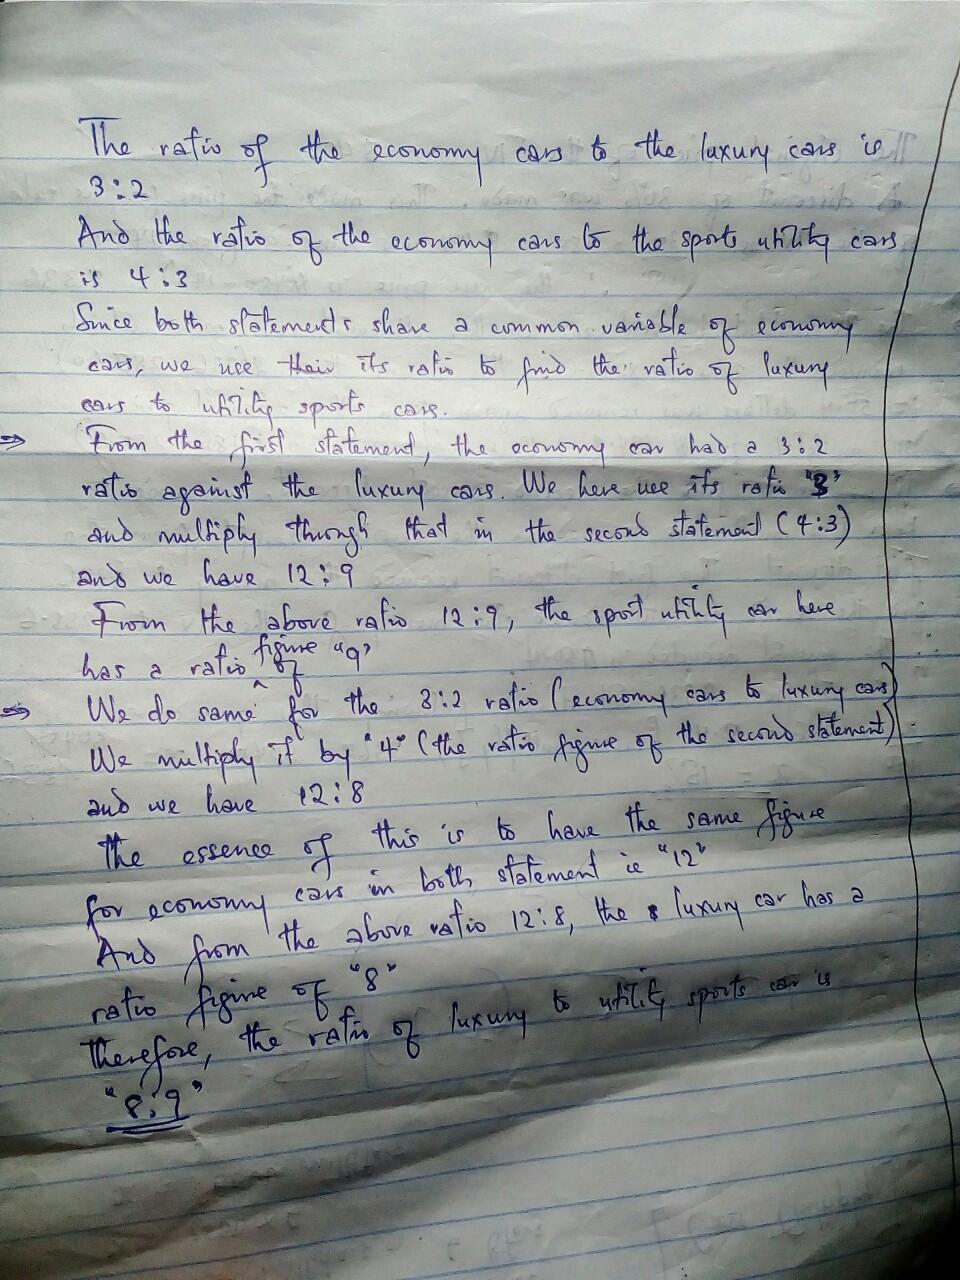 The ratio of the economy cars to the luxury cars is
3:2
And the ratio of the economy cars to the sports utility cars
is 4:3
Since both statements share a common variable of economy
cars, we use their its ratio to find the ratio of luxury
cars to utility sports cars.
⇒ From the first statement, the economy car had a 3:2
ratio against the luxury cars. We here use its ratio "3"
and multiply through that in the second statement (4:3)
and we have 12:9
From the above ratio 12:9, the sport utility car here
has a ratio figure of "9"
⇒ We do same for the 3:2 ratio (economy cars to luxury cars)
We multiply it by "4" (the ratio figure of the second statement)
and we have 12:8
The essence of this is to have the same figure
for economy cars in both statement ie "12"
And from the above ratio 12:8, the luxury car has a
ratio figure of "8"
Therefore, the ratio of luxury to utility sports car is
"8:9"